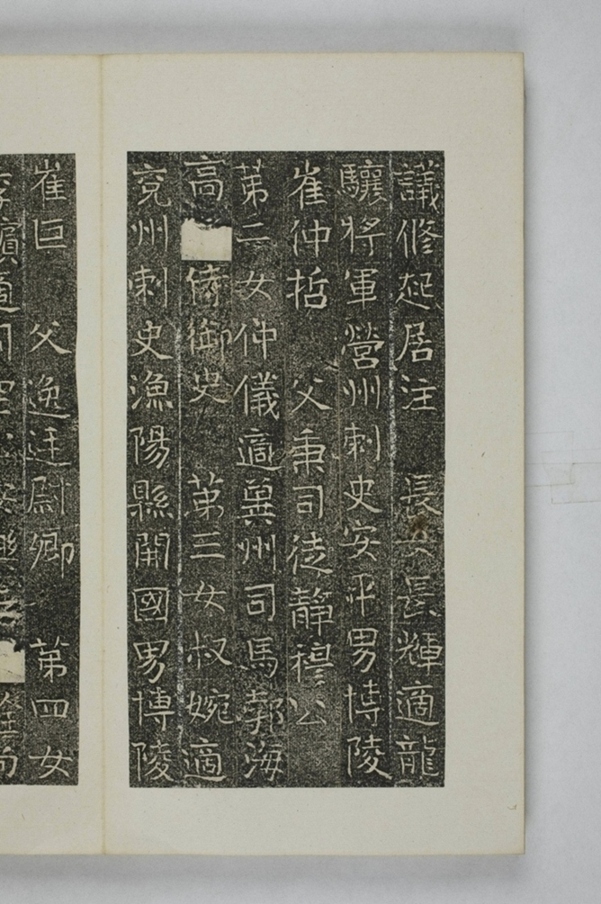 議脩起居注 長女長輝適龍
驤將軍營州刺史安平男博陵
崔仲哲 父秉司徒靜穆公
苐二女仲儀適兾州司馬勃海
高 侍御史 苐三女叔婉適
兖州刺史漁陽縣開國男博陵
崔巨 父逸廷尉卿 苐四女
適司空